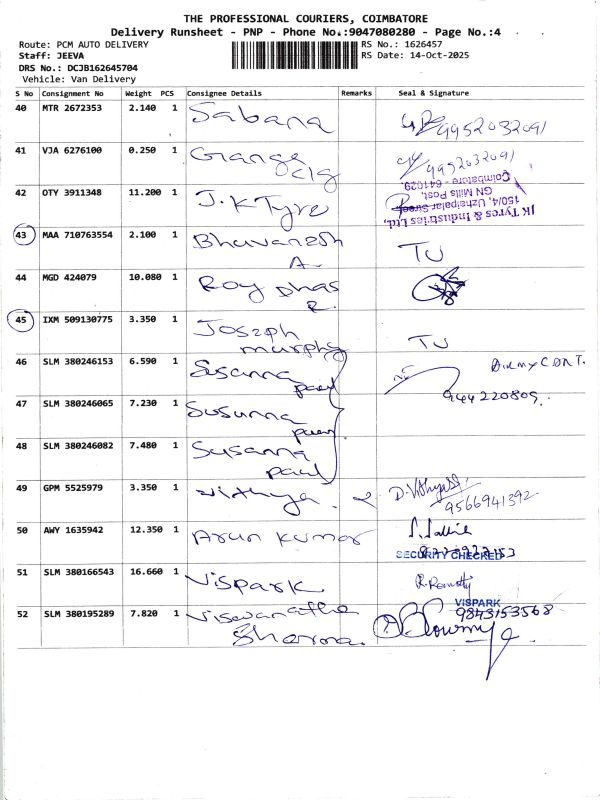 THE PROFESSIONAL COURIERS, COIMBATORE
Delivery Runsheet - PNP - Phone No.:9047080280 - Page No.:4
Route: PCM AUTO DELIVERY RS No.: 1626457
Staff: JEEVA RS Date: 14-Oct-2025
DRS No.: DCJB162645704
Vehicle: Van Delivery
S No Consignment No Weight PCS Consignee Details Remarks Seal & Signature
40 MTR 2672353 2.140 1 Sabana 9952032091
41 VJA 6276100 0.250 1 Grange 9952032091
clg
42 OTY 3911348 11.200 1 J.K Tyre
JK Tyres & Industries Ltd.
150/4, Uzhaipalar Street,
GN Mills Post,
Coimbatore - 641029.
43 MAA 710763554 2.100 1 Bhuvanesh TU
A.
44 MGD 424079 10.080 1 Roy Dhas
R.
45 IXM 509130775 3.350 1 Joseph TU
murphy
46 SLM 380246153 6.590 1 Susanna
paul
47 SLM 380246065 7.230 1 Susunna
paul
48 SLM 380246082 7.480 1 Susanna
paul
49 GPM 5525979 3.350 1 vithya.
9566941392
50 AWY 1635942 12.350 1 Arun kumar
SECURITY CHECKED
51 SLM 380166543 16.660 1 Vispark
VISPARK
9843153568
52 SLM 380195289 7.820 1 Viswanatha
Sharma.